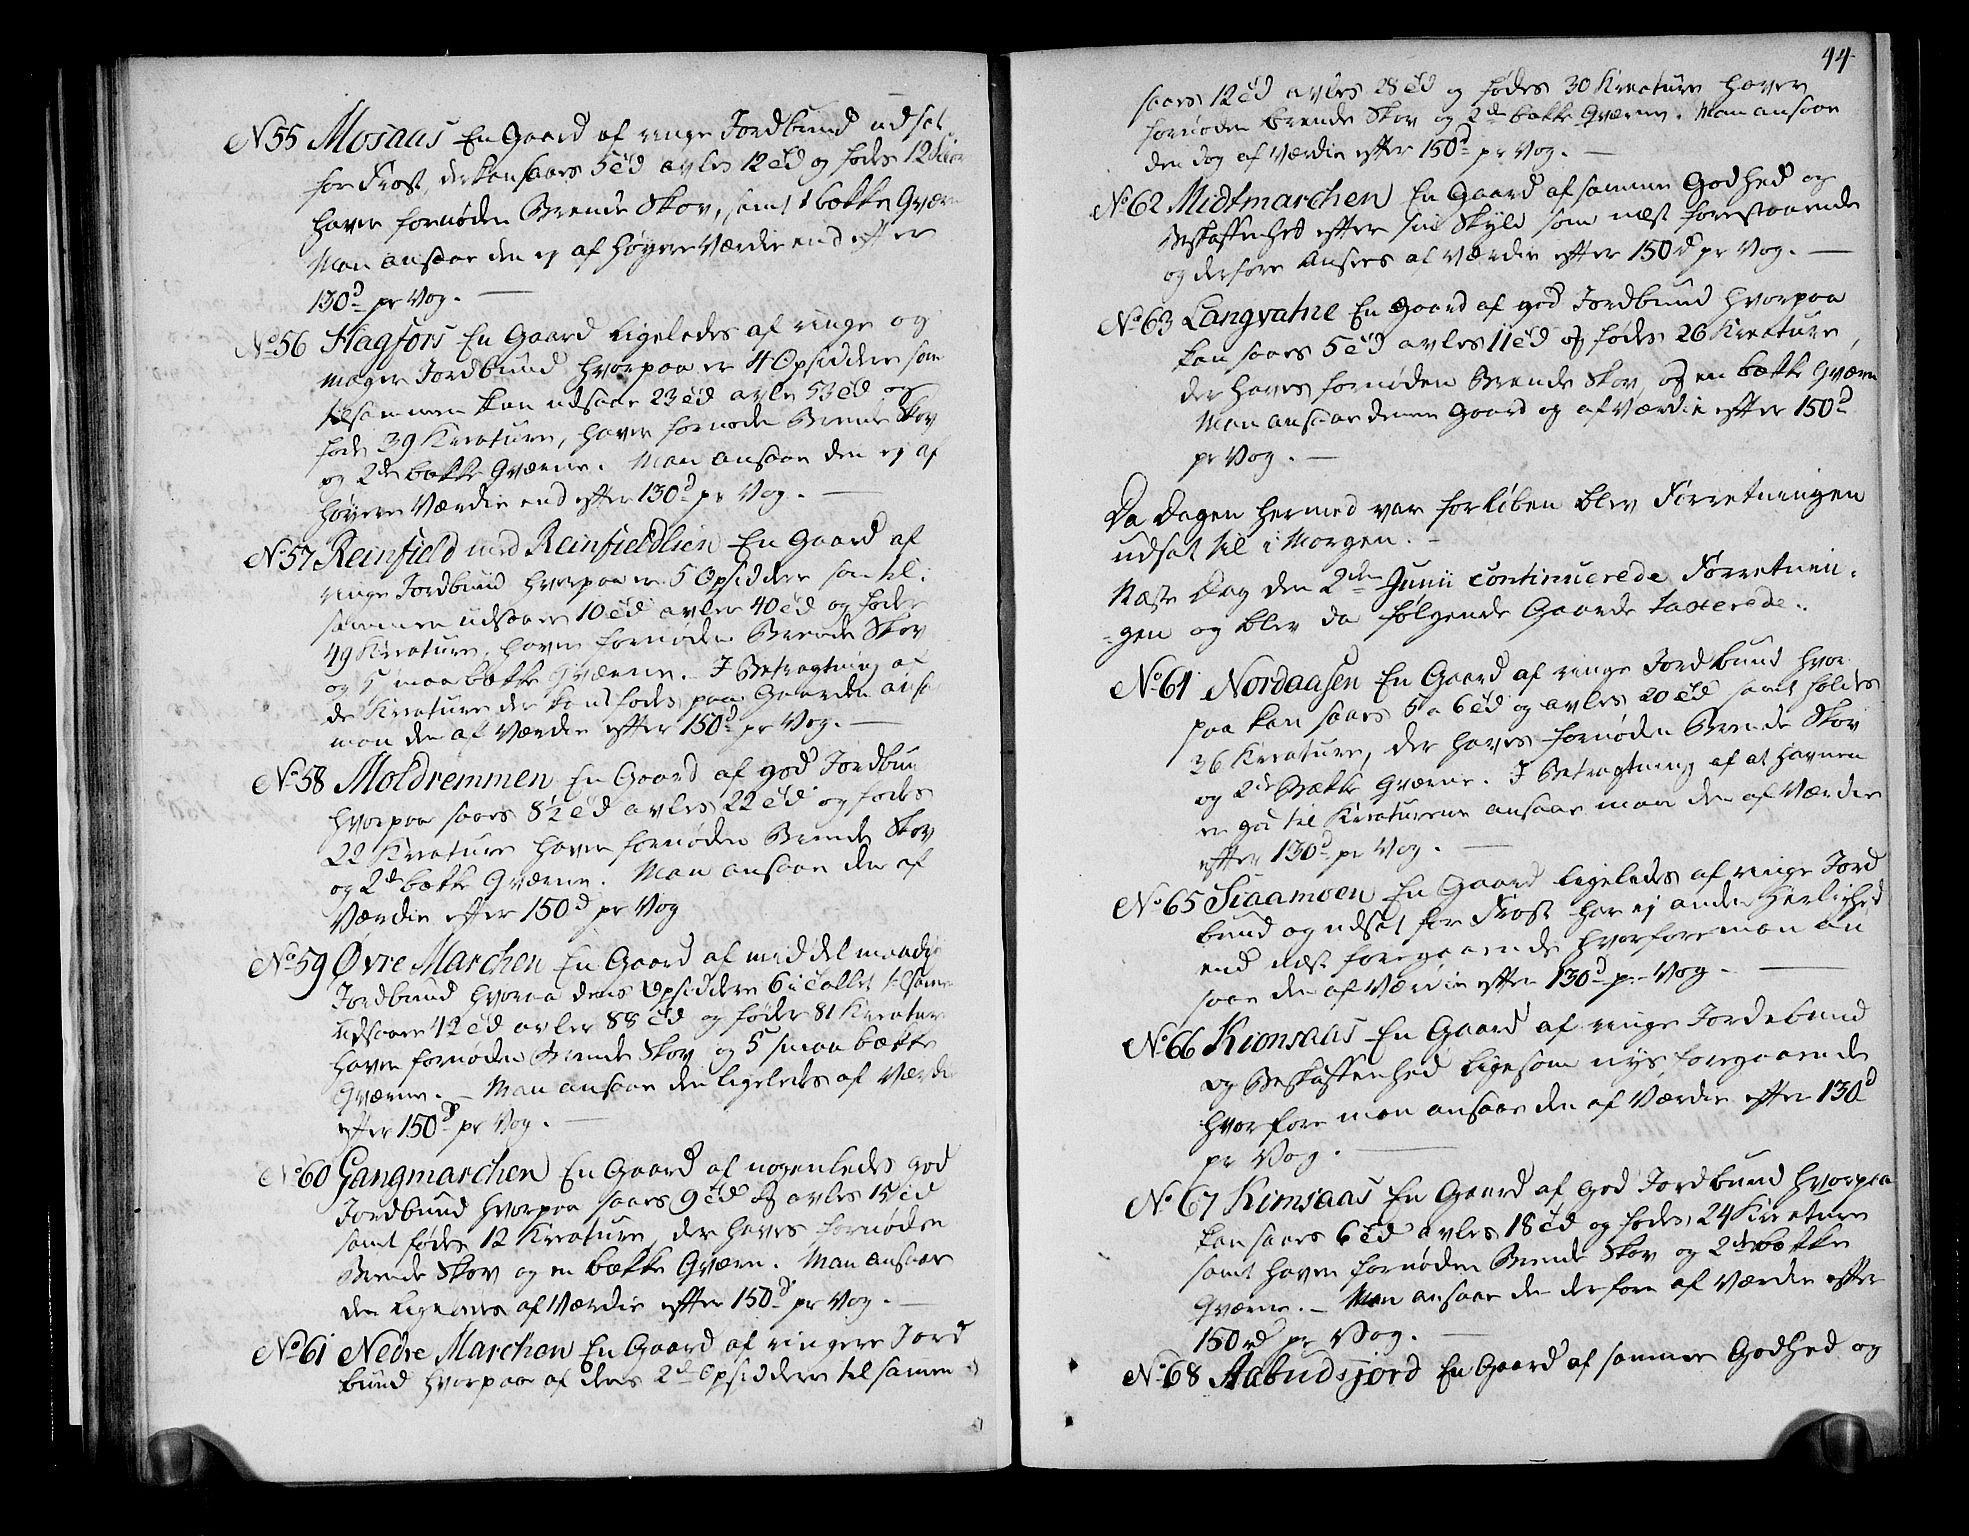 N55 Mosaas En Gaard af ringe Jordbund udsat
for Frost, der kan saaes 5 td avles 12 td og fødes 12
haver fornøden Brende Skov, samt 1 bække Gværn
Man ansaae den ej af høyere Værdie end efter
130d pr Vog. —
No56 Hagfors En Gaard ligeledes af ringe og
mager Jordbund hvorpaa er 4 Opsiddere som
tilsammen kan udsaae 23 td avle 53 td og
føde 39 Kreature, haver fornøden Brende Skov
og 2de bække Gværne. Man ansaae den ej af
høyere Værdie end efter 130d pr Vog. —
No57 Reinfield med Reinfieldlien En Gaard af
ringe Jordbund hvorpaa er 5 Opsiddere som til-
sammen udsaaer 10 td avler 40 td og føder
49 Kreature, haver fornøden Brende Skov
og 5 smaa bække Gværne. I Betragtning af
de Kreature der kand fødes paa Gaarden ansaae
man den af Værdie efter 150d pr Vog. —
No58 Moldremmen En Gaard af god Jordbund
hvorpaa saaes 8½ td avles 22 td og fødes
22 Kreature haver fornøden Brende Skov
og 2de bække Gværne. Man ansaae den af
Værdie efter 150d pr Vog
No59 Øvre Marchen En Gaard af middelmaadig
Jordbund hvoraa dens Opsiddere 6 i tallet tilsamen
udsaaer 42 td avler 88 td og føder 81 Kreature
haver fornøden Brende Skov og 5 smaa bække
Gværne. – Man ansaae den ligeledes af Værdie
efter 150d pr Vog. —
No60 Gangmarchen En Gaard af nogenledes god
Jordbund hvorpaa saaes 9 td og avles 15 td
samt fødes 12 Kreature, der haves fornøden
Brende Skov og en bække Gværn. Man ansaae
den ligeledes af Værdie efter 150d pr Vog. —
No61 Nedre Marchen En Gaard af ringere Jord
bund hvorpaa af dens 2de Opsiddere tilsamen
44
saaes 12 td avles 28 td og fødes 30 Kreature haver
fornøden Brende Skov og 2de bække Gværne. Man ansaae
den dog af Værdie efter 150d pr Vog. —
No62 Midtmarchen En Gaard af samme Godhed og
Beskaffenhed efter sin Skyld som næst forestaaende
og derfore Ansees af Værdie efter 150d pr Vog. —
No63 Langvatne En Gaard af god Jordbund hvorpaa
kan saaes 5 td avles 11 td og fødes 26 Kreature,
der haves fornøden Brende Skov, og en bække Gværn
Man ansaae denne Gaard og af Værdie efter 150d
pr Vog. —
Da Dagen hermed var forløben blev Forretningen
udsat til i Morgen. –
Næste Dag den 2den Junii continuerede Forretnin-
-gen og blev da følgende Gaarde taxerede.
No64 Nordaasen En Gaard af ringe Jordbund hvor-
paa kan saaes 5 a 6 td og avles 20 td samt holdes
36 Kreature, der haves fornøden Brende Skov
og 2de Bække Gværne. I Betragtning af at Havnen
er god til Kreaturene ansaae man den af Værdie
efter 130d pr Vog. —
No65 Siaamoen En Gaard ligeledes af ringe Jord
bund og udsat for Frost har ej anden Herlighed
end næst foregaaende hvorfore man an
saae den af Værdie efter 130d pr Vog. —
No66 Kionsaas En Gaard af ringe Jordebund
og Beskaffenhed ligesom nys foregaaende
hvorfore man ansaae den af Værdie efter 130d
pr Vog. —
No67 Kimsaas En Gaard af god Jordbund hvorpaa
kan saaes 6 td avles 18 td og fødes 24 Kreature
samt haver fornøden Brende Skov og 2de bække
Gværne. – Man ansaae den derfore af Værdie efter
150 rd pr Vog. —
No68 Aabudsjord En Gaard af samme Godhed og